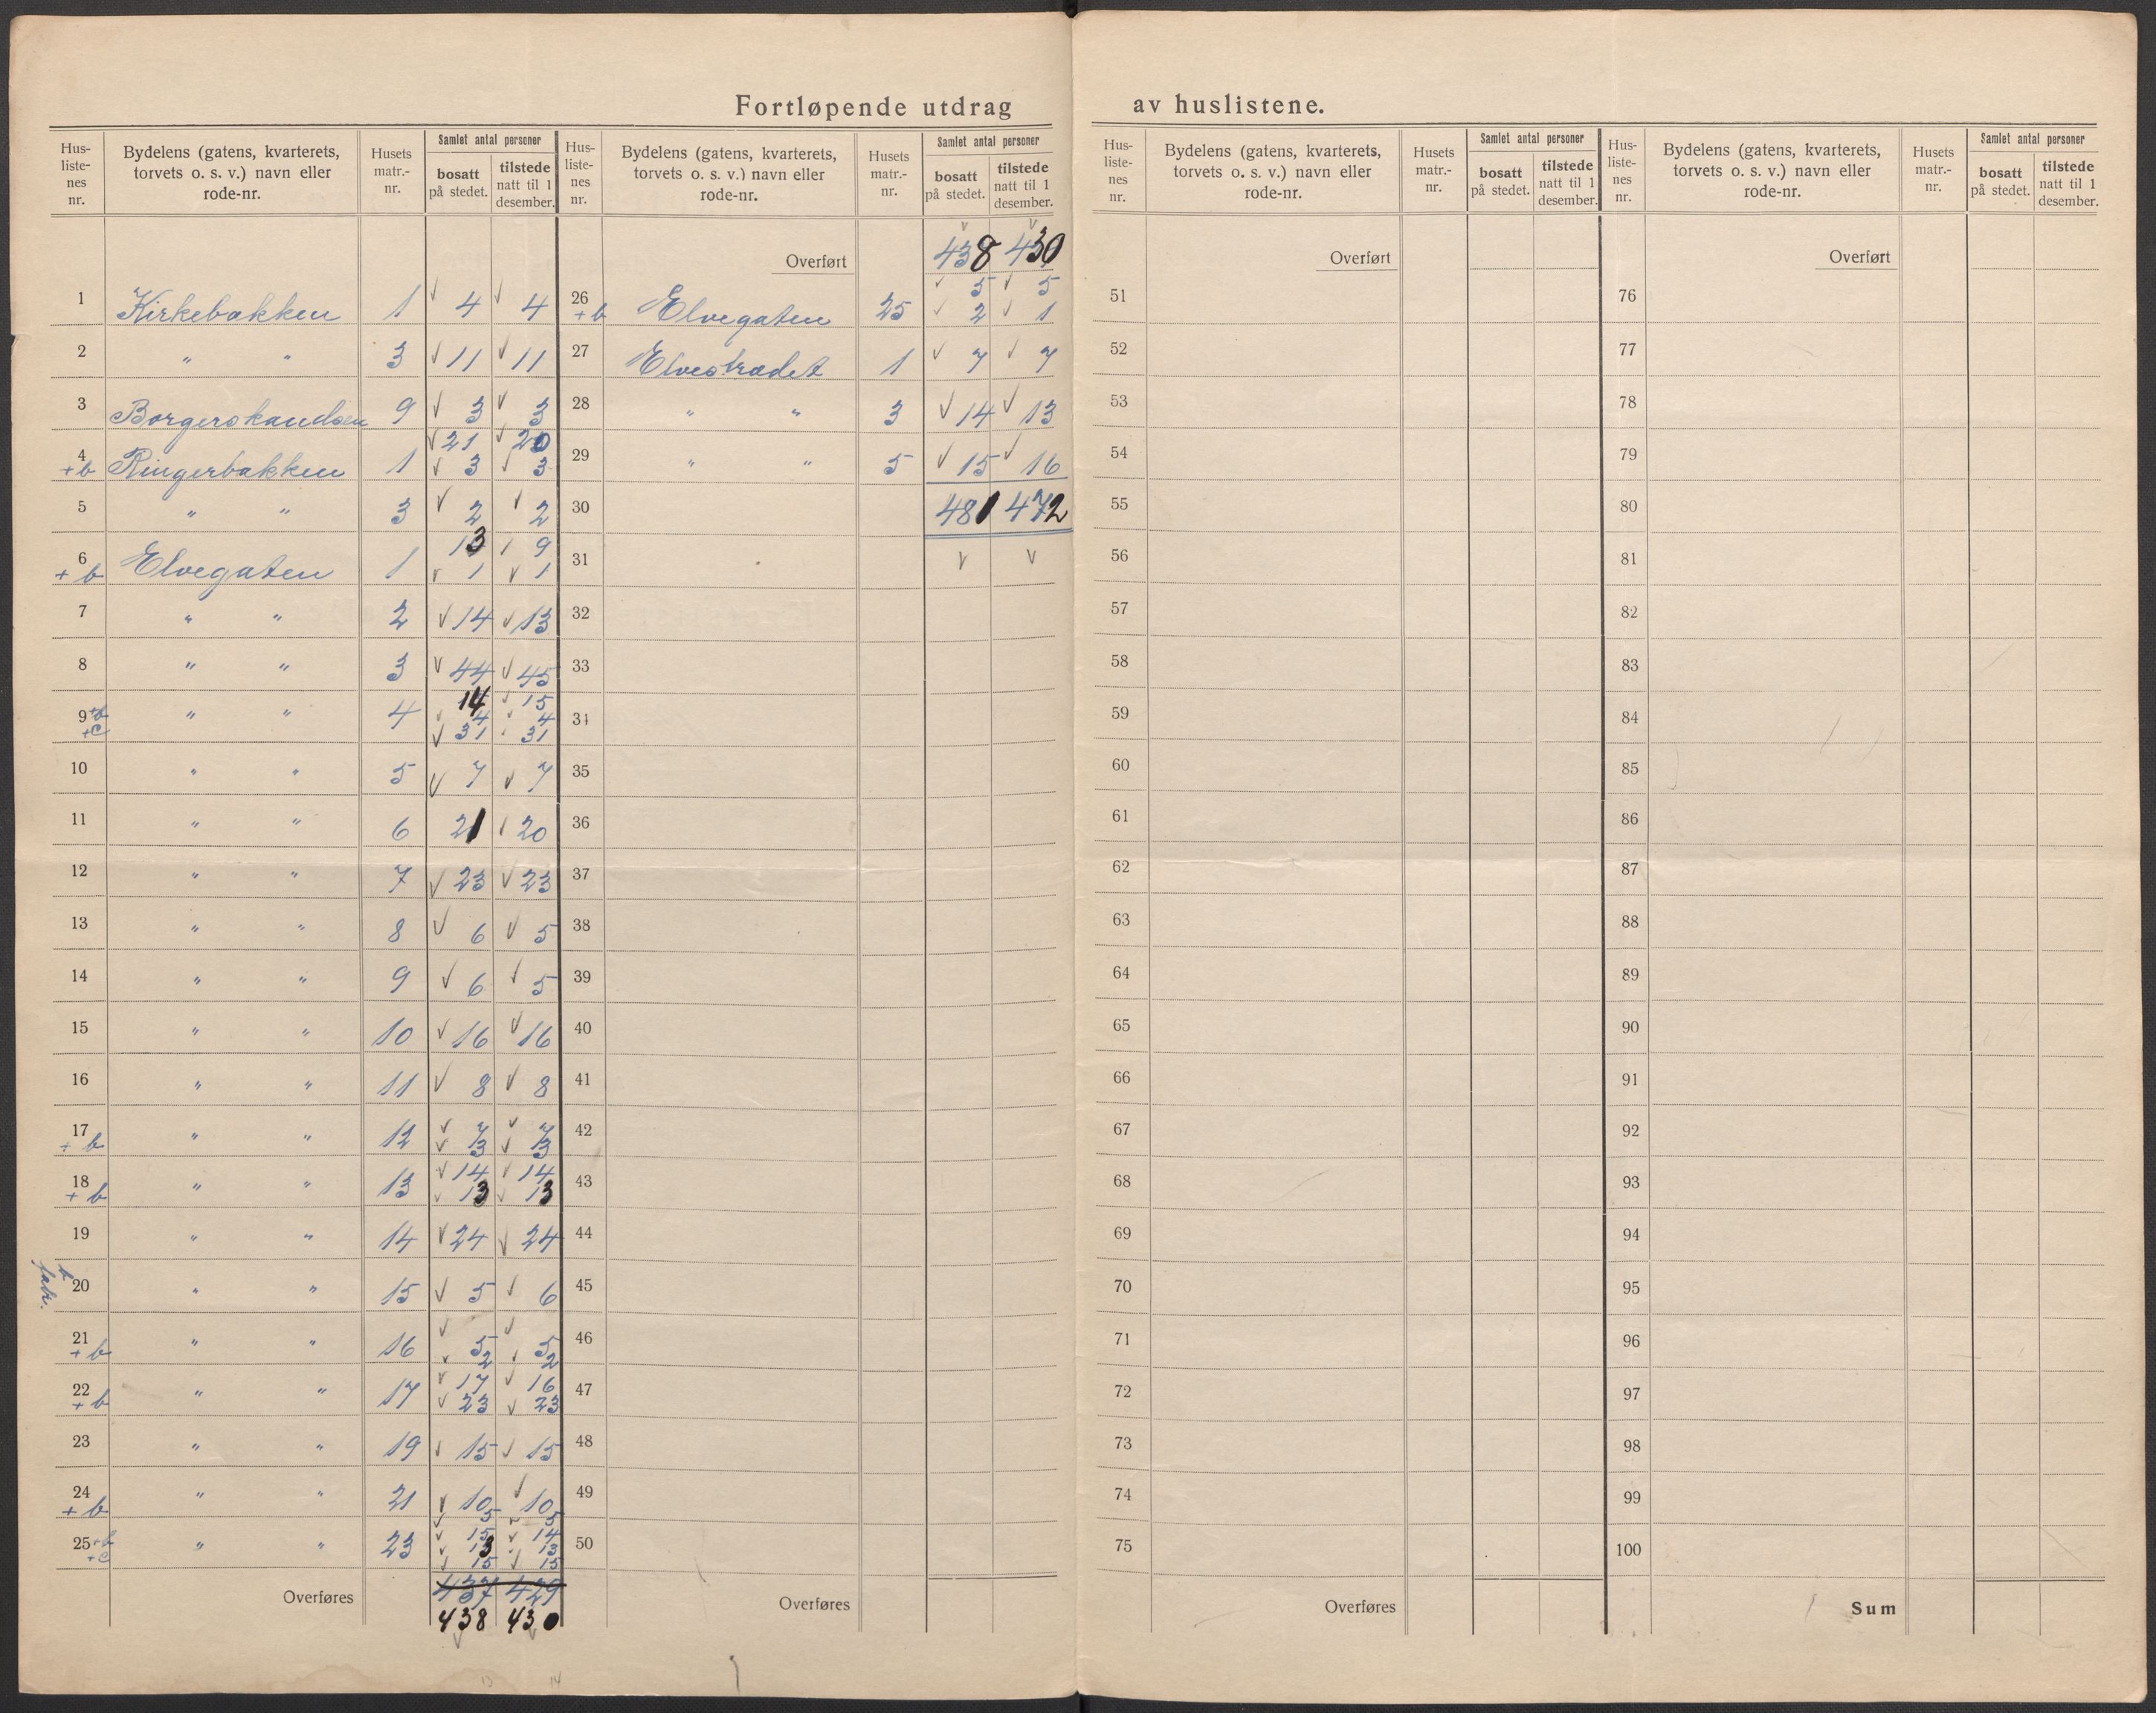 Fortløpende utdrag av huslistene.
Hus-listenes nr. | Bydelens (gatens, kvarterets, torvets o. s. v.) navn eller rode-nr. | Husets matr.-nr. | Samlet antal personer | bosatt på stedet. | tilstede natt til 1 desember.
1 Kirkebakken 1 4 4
2 " " 3 11 11
3 Borgerskandsen 9 3 3
4 +b Ringerbakken 1 21 20
3 3
5 " " 3 2 2
6 +b Elvegaten 1 13 9
1 1
7 " " 2 14 13
8 " " 3 44 45
9 +b +c " " 4 14 15
4 4
31 31
10 " " 5 7 7
11 " " 6 21 20
12 " " 7 23 23
13 " " 8 6 5
14 " " 9 6 5
15 " " 10 16 16
16 " " 11 8 8
17 +b " " 12 7 7
3 3
18 +b " " 13 14 14
13 13
19 " " 14 24 24
20 " " 15 5 6
21 +b " " 16 5 5
2 2
22 +b " " 17 17 16
23 23
23 " " 19 15 15
24 +b " " 21 10 10
5 5
25 +b +c " " 23 15 14
13 13
15 15
Overføres 437 429
438 430
Hus-listenes nr. | Bydelens (gatens, kvarterets, torvets o. s. v.) navn eller rode-nr. | Husets matr.-nr. | Samlet antal personer | bosatt på stedet. | tilstede natt til 1 desember.
Overført 438 430
26 +b Elvegaten 25 5 5
2 1
27 Elvestrædet 1 7 7
28 " " 3 14 13
29 " " 5 15 16
30 481 472
31
32
33
34
35
36
37
38
39
40
41
42
43
44
45
46
47
48
49
50
Overføres
13 14
Hus-listenes nr. | Bydelens (gatens, kvarterets, torvets o. s. v.) navn eller rode-nr. | Husets matr.-nr. | Samlet antal personer | bosatt på stedet. | tilstede natt til 1 desember.
Overført
51
52
53
54
55
56
57
58
59
60
61
62
63
64
65
66
67
68
69
70
71
72
73
74
75
Overføres
Hus-listenes nr. | Bydelens (gatens, kvarterets, torvets o. s. v.) navn eller rode-nr. | Husets matr.-nr. | Samlet antal personer | bosatt på stedet. | tilstede natt til 1 desember.
Overført
76
77
78
79
80
81
82
83
84
85
86
87
88
89
90
91
92
93
94
95
96
97
98
99
100
Sum